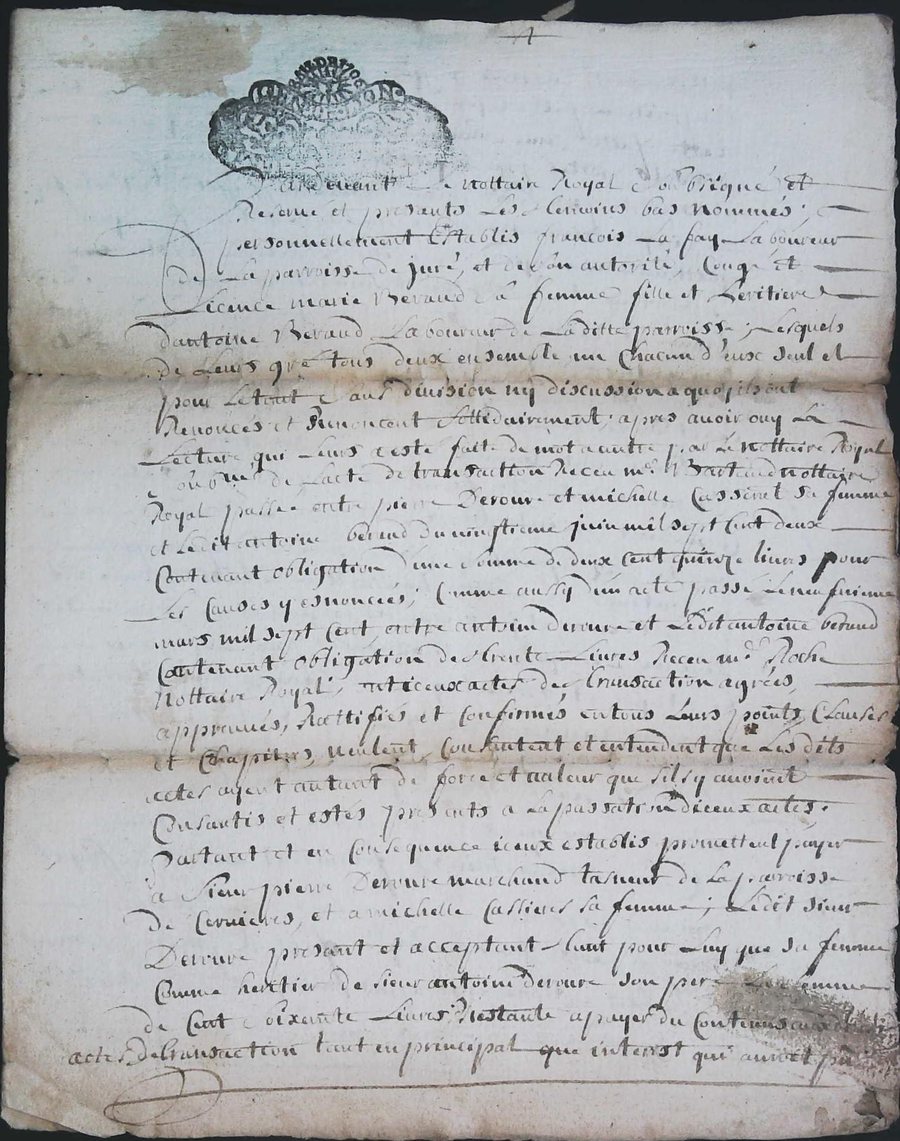 Pardevant Le Nottaire Royal soubsigné et
Reservé et presants Les temoins bas nommés;
personnellement Establis françois La fay Laboureur
de La parroisse de juré, et de son autorité, Congé et
Licence marie Beraud sa femme fille et heritiere
dantoine Beraud Laboureur de Laditte parroisse; Lesquels
de Leurs gré tous deux ensemble un chacun d'eux seul et
pour Le tout sans division ny discussion a quoy ils ont
Renoncés et Renoncent Sollidairement; apres avoir ouy La
Lecture qui Leurs a esté faite de mot a autre par Le nottaire Royal
soubne de Lacte de transaction Receu me Bartaud nottaire
Royal passée entre pierre Deroure et michelle Casseret sa femme
et Ledit antoine beraud du vingtieme juin mil sept Cent deux
Contenant obligation d'une somme de deux Cent quinze livres pour
Les Causes y esnoncées; Comme aussy d'un acte passé Le neufvieme
mars mil sept Cent, entre antoine deroure et Ledit antoine beraud
Contenant obligation de trente Livres Receu me Roche
Nottaire Royal, et iceux actes de transaction agrées,
approuvés, Rattifiés et Confirmés en tous Leurs points, Clauses
et Chapitres, veulent, Consentent et entendent que Les dits
actes ayent autant de force et valeur que s'ils y avoint
Consantis et estés presents a La passation d'iceux actes.
Partant et en Consequence iceux establis promettent payer
a Sieur pierre Deroure marchand tasneur de La parroisse
de Cernieres, et a michelle Cassieres sa femme; Ledit sieur
Deroure present et acceptant tant pour Luy que sa femme
Comme heretier de sieur antoine deroure son pere La somme
de Cent soixante Livres Restante a payer du Contenus aux
actes De transaction tant en principal que interest qui